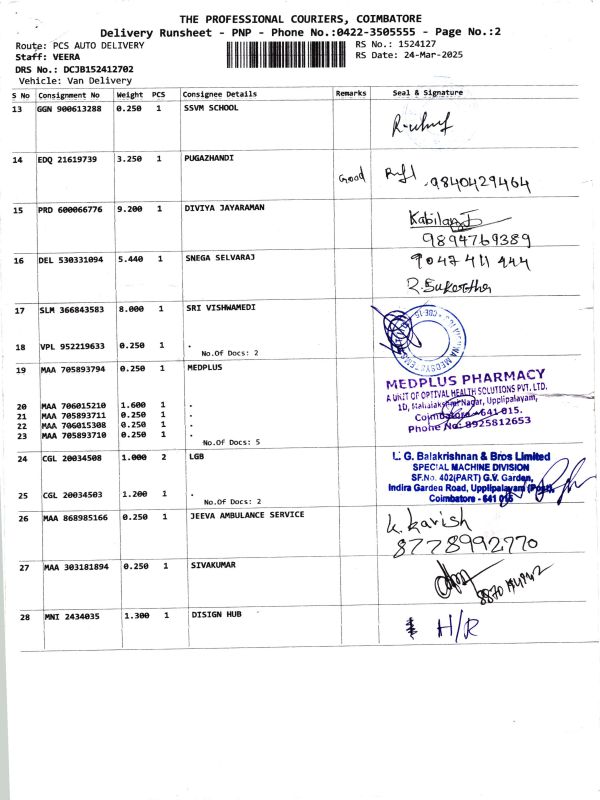 THE PROFESSIONAL COURIERS, COIMBATORE
Delivery Runsheet - PNP - Phone No.:0422-3505555 - Page No.:2
Route: PCS AUTO DELIVERY RS No.: 1524127
Staff: VEERA RS Date: 24-Mar-2025
DRS No.: DCJB152412702
Vehicle: Van Delivery
S No Consignment No Weight PCS Consignee Details Remarks Seal & Signature
13 GGN 900613288 0.250 1 SSVM SCHOOL
14 EDQ 21619739 3.250 1 PUGAZHANDI
Good 9840429464
15 PRD 600066776 9.200 1 DIVIYA JAYARAMAN
Kabilan
9894769389
16 DEL 530331094 5.440 1 SNEGA SELVARAJ 9047411444
17 SLM 366843583 8.000 1 SRI VISHWAMEDI
18 VPL 952219633 0.250 1 .
No.Of Docs: 2
19 MAA 705893794 0.250 1 MEDPLUS
MEDPLUS PHARMACY
A UNIT OF OPTIVAL HEALTH SOLUTIONS PVT. LTD.
1D, Mahalakshmi Nagar, Upplipalayam,
Coimbatore - 641 015.
Phone No: 8925812653
20 MAA 706015210 1.600 1 .
21 MAA 705893711 0.250 1 .
22 MAA 706015308 0.250 1 .
23 MAA 705893710 0.250 1 .
No.Of Docs: 5
24 CGL 20034508 1.000 2 LGB
L. G. Balakrishnan & Bros Limited
SPECIAL MACHINE DIVISION
SF.No. 402(PART) G.V. Garden,
Indira Garden Road, Upplipalayam (Post),
Coimbatore - 641 015
25 CGL 20034503 1.200 1 .
No.Of Docs: 2
26 MAA 868985166 0.250 1 JEEVA AMBULANCE SERVICE
K. Kavish
8778992770
27 MAA 303181894 0.250 1 SIVAKUMAR
28 MNI 2434035 1.300 1 DISIGN HUB
H/R